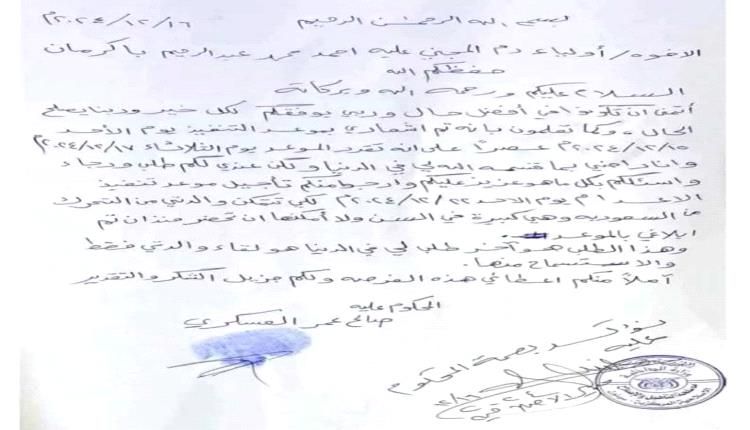 بسم الله الرحمن الرحيم ٢٠٢٤/١٢/١٦م
الاخوة/ أولياء دم المجني عليه احمد محمد عبدالرحيم باكرمان
حفظكم الله
السلام عليكم ورحمة الله وبركاته
أتمنى ان تكونوا في أفضل حال وربي يوفقكم لكل خير ودينا يصلح
الحال، وكما تعلمون بانه تم اشعاري بموعد التنفيذ يوم الأحد
٢٠٢٤/١٢/١٥م عصراً على انه تقرر الموعد يوم الثلاثاء ٢٠٢٤/١٢/١٧م
وانا راضي بما قسمه الله لي في الدنيا ولكن عندي لكم طلب ورجاء
واسئلكم بكل ما هو عزيز عليكم وارجوا منكم تأجيل موعد تنفيذ
الاعدام يوم الاحد ٢٠٢٤/١٢/٢٢م لكي تتمكن والدتي من التحرك
من السعوديه وهي كبيرة في السن ولا أمكنها ان تحضر منذ ان تم
ابلاغي بالموعد.
وهذا الطلب هو آخر طلب لي في الدنيا هو لقاء والدتي فقط
والاستسماح منها.
آملاً منكم اعطائي هذه الفرصه ولكم جزيل الشكر والتقدير
المحكوم عليه
صالح عمر العسكري
نؤكد بصمة المحكوم
عليه